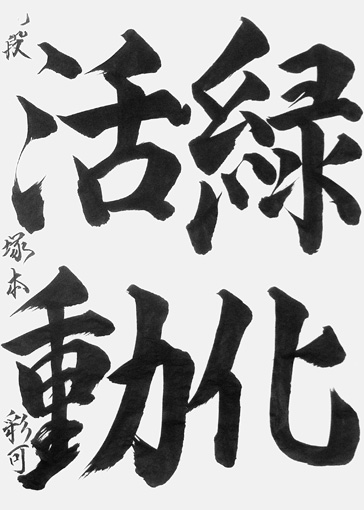 緑化
活動
段 塚本 彩可